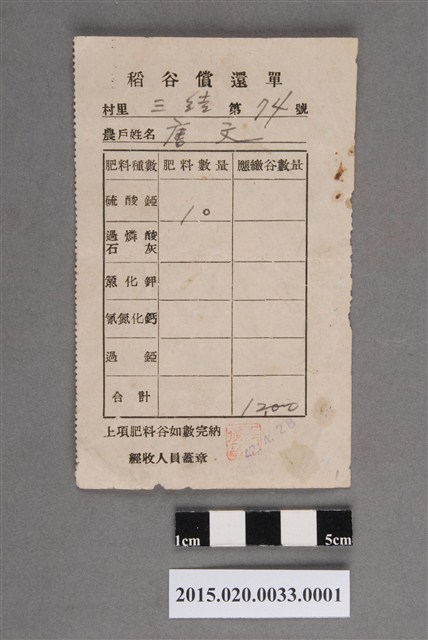 稻谷償還單
村里 三 第 74 號
農戶姓名 唐文
肥料種數 肥料數量 應繳谷數量
硫酸錏 10
過燐酸石灰
氯化钾
氰氮化鈣
過錏
合計 1200
上項肥料谷如數完納
經收人員蓋章
1cm 5cm
2015.020.0033.0001